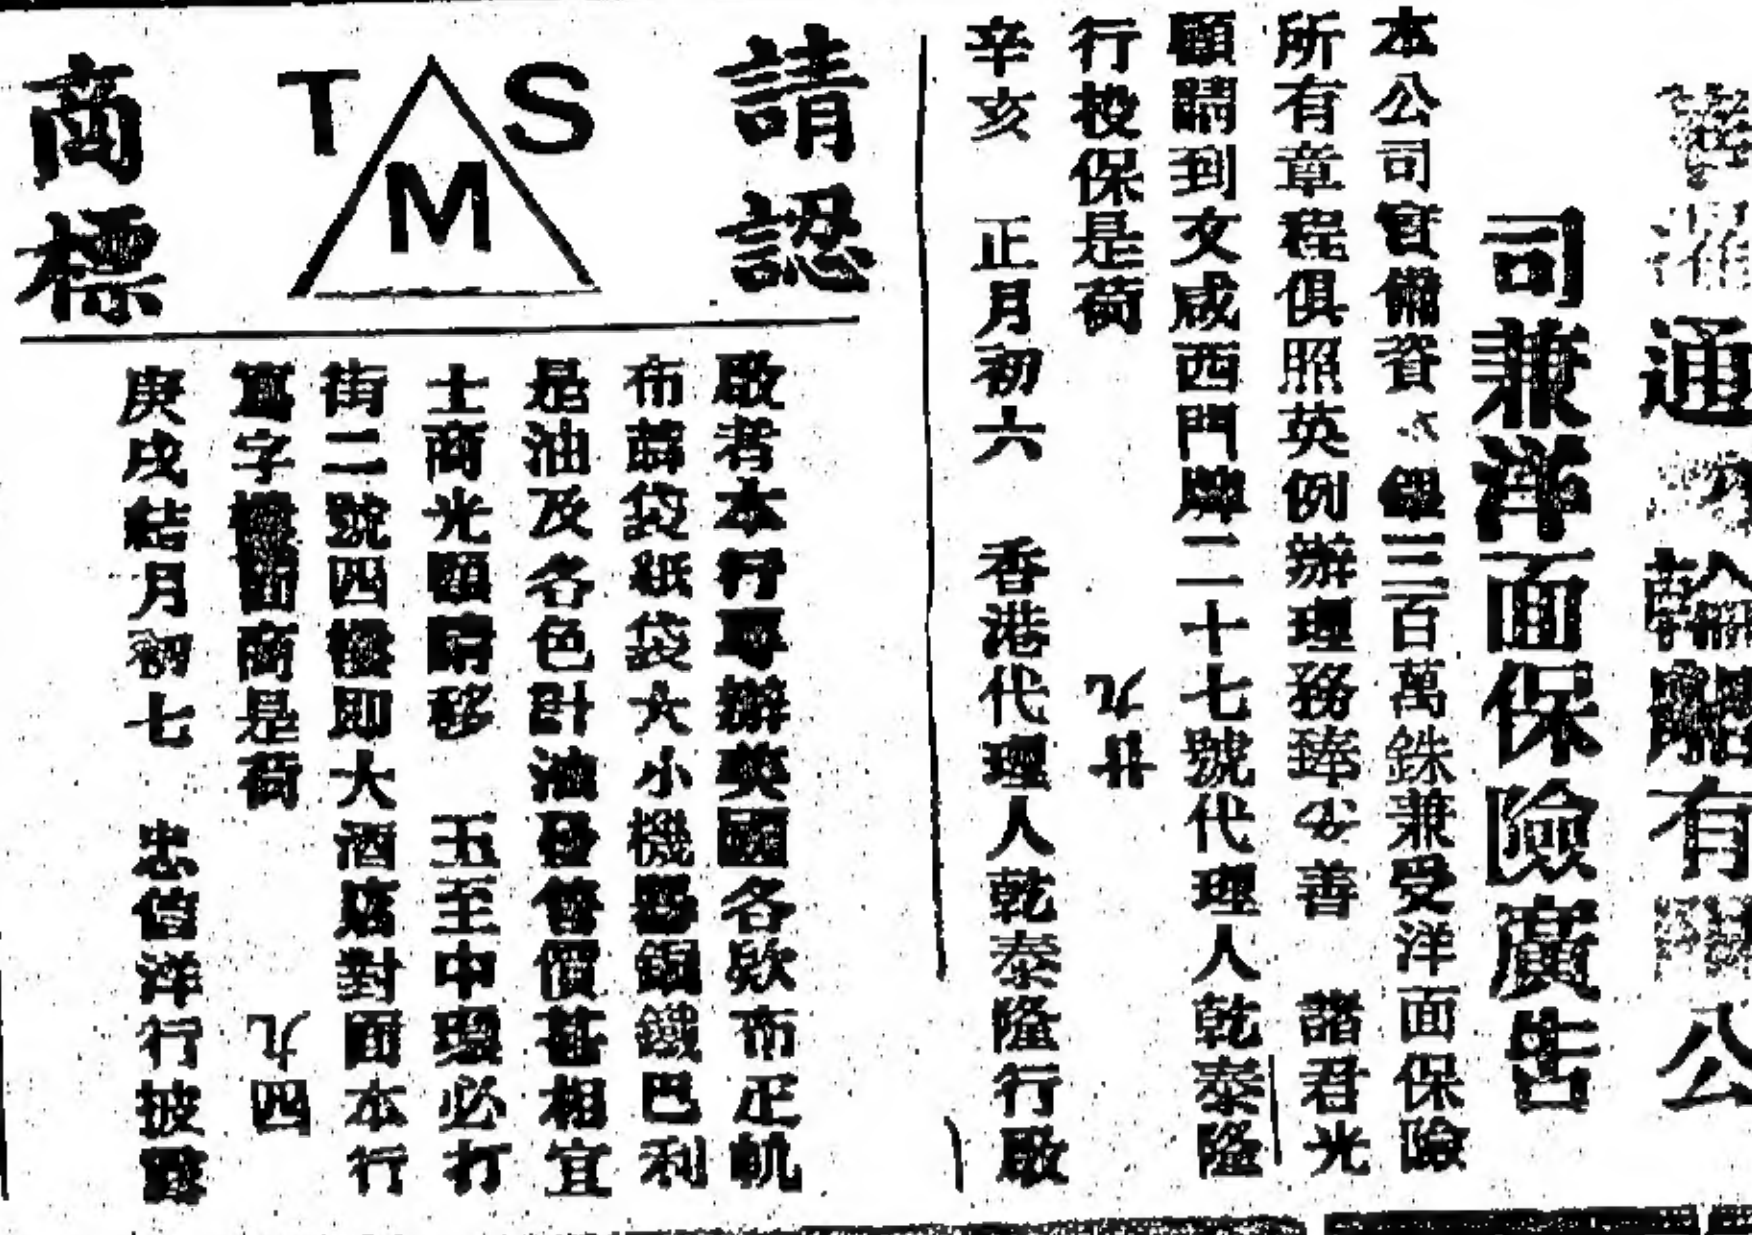 通 輪船有 公
司兼洋面保險廣告
本公司實備資 銀三百萬銖兼受洋面保險
所有章程俱照英例辦理務臻公善 諸君光
顧請到文咸西門牌二十七號代理人乾泰隆
行投保是荷
九 廿
辛亥 正月初六 香港代理人乾泰隆行啟
請認
T M S
商標
啟者本行專辦英國各欵布疋帆
布蔴袋紙袋大小機器鋼鐵巴利
是油及各色計油發售價甚相宜
士商光顧請移 玉至中環必打
街二號四樓即大酒店對面本行
寫字樓面商是荷
九 四
庚戌結月初七 忠信洋行披露